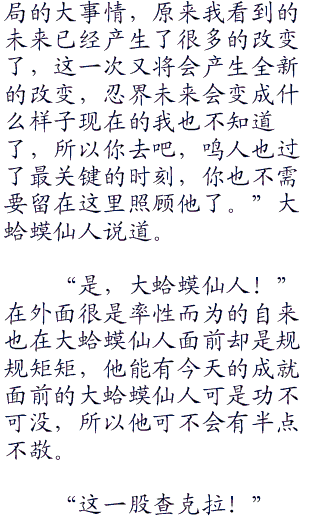 局的大事情，原来我看到的
未来已经产生了很多的改变
了，这一次又将会产生全新
的改变，忍界未来会变成什
么样子现在的我也不知道
了，所以你去吧，鸣人也过
了最关键的时刻，你也不需
要留在这里照顾他了。”大
蛤蟆仙人说道。
“是，大蛤蟆仙人！”
在外面很是率性而为的自来
也在大蛤蟆仙人面前却是规
规矩矩，他能有今天的成就
面前的大蛤蟆仙人可是功不
可没，所以他可不会有半点
不敬。
“这一股查克拉！”